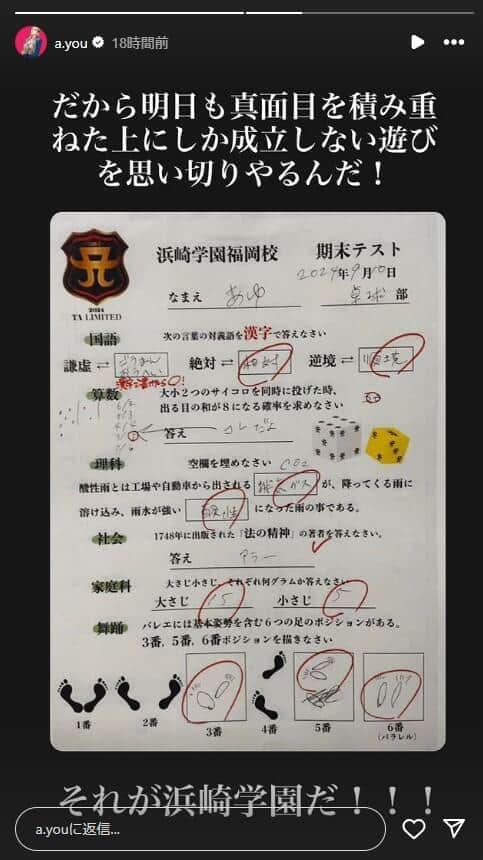 a.you 18時間前
だから明日も真面目を積み重
ねた上にしか成立しない遊び
を思い切りやるんだ！
浜崎学園福岡校 期末テスト
2024年9月10日
なまえ あゆ 卓球 部
2024
TA LIMITED
国語 次の言葉の対義語を漢字で答えなさい
謙虚 ⇄ ごうまん 絶対 ⇄ 相対 逆境 ⇄ 順境
おうへい
漢字で書けたら○!
算数 大小2つのサイコロを同時に投げた時、
出る目の和が8になる確率を求めなさい
答え コレだよ
理科 空欄を埋めなさい CO2
酸性雨とは工場や自動車から出される 排気ガス が、降ってくる雨に
溶け込み、雨水が強い 酸性 になった雨の事である。
社会 1748年に出版された「法の精神」の著者を答えなさい。
答え アラー
家庭科 大さじ小さじ、それぞれ何グラムか答えなさい
大さじ 15 小さじ 5
舞踊 バレエには基本姿勢を含む6つの足のポジションがある。
3番、5番、6番ポジションを描きなさい
1番 2番 3番 4番 5番 6番
(パラレル)
それが浜崎学園だ！！！
a.youに返信...